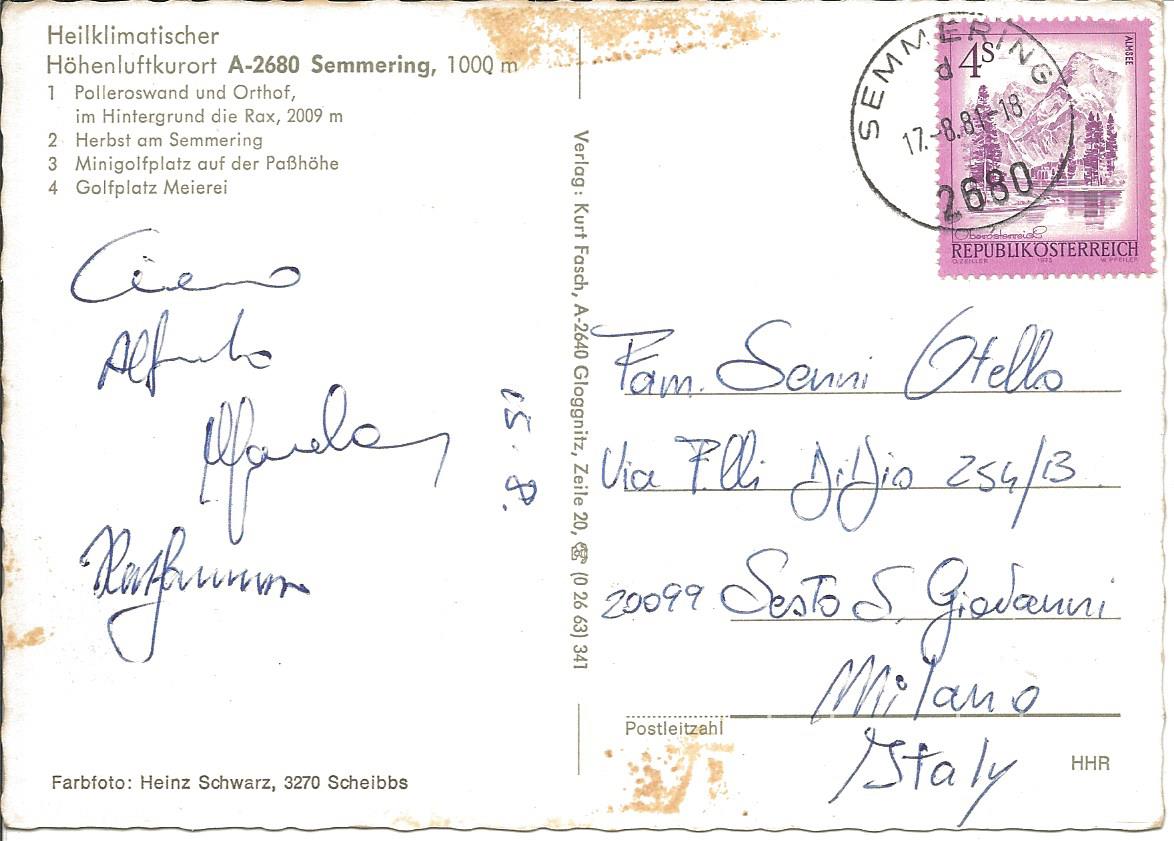 Heilklimatischer
Höhenluftkurort A-2680 Semmering, 1000 m
1 Polleroswand und Orthof,
im Hintergrund die Rax, 2009 m
2 Herbst am Semmering
3 Minigolfplatz auf der Paßhöhe
4 Golfplatz Meierei
Alfredo
Farbfoto: Heinz Schwarz, 3270 Scheibbs
Verlag: Kurt Fasch, A-2640 Gloggnitz, Zeile 20, ☎ (0 26 63) 341
SEMMERING
d
17.-8.81-18
2680
4S
ALMSEE
Oberösterreich
REPUBLIK ÖSTERREICH
O.ZEILLER 1973 W.PFEILER
Fam. Sanni Otello
Via F.lli Di Dio 254/B
20099 Sesto S. Giovanni
Milano
Postleitzahl
Italy
HHR